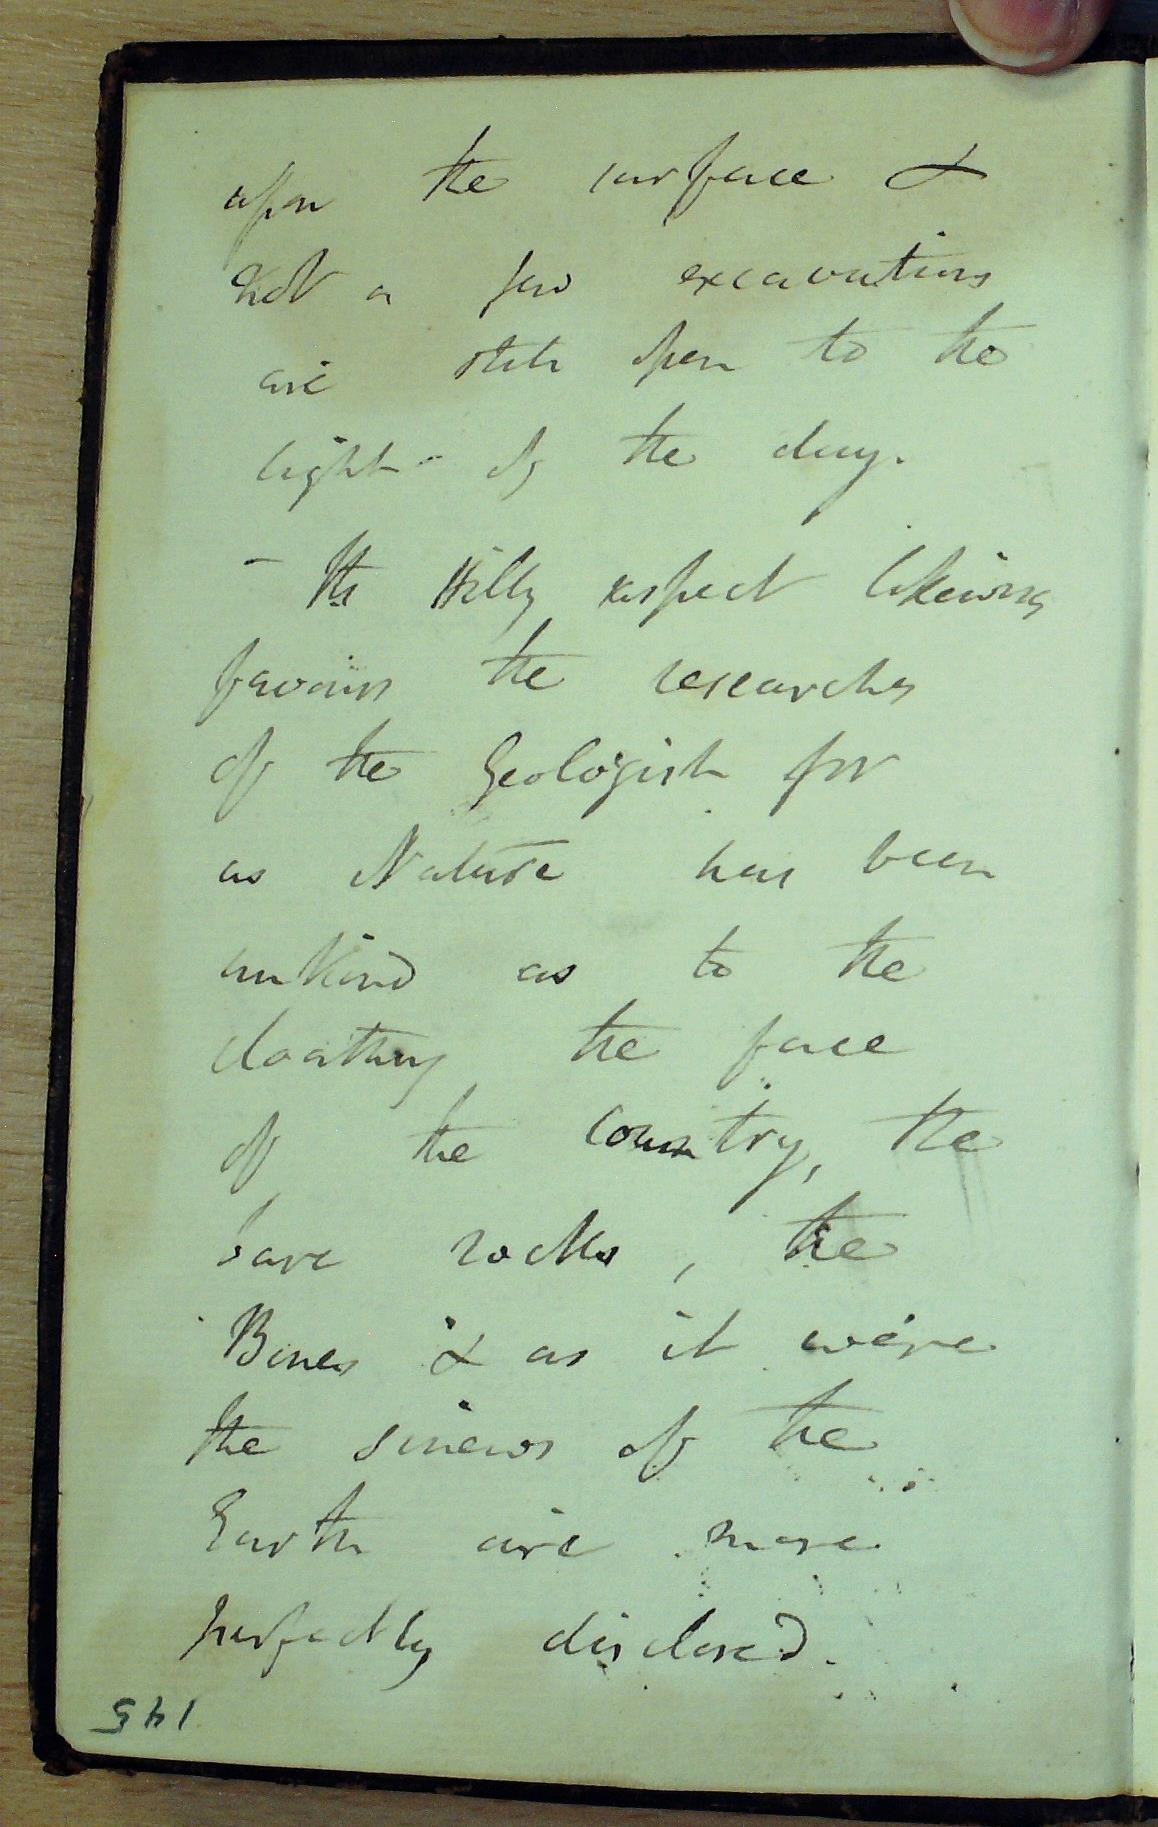 upon the surface &
not a few excavations
are still open to the
light of the day.
- The Hilly aspect likewise
favours the researches
of the Geologist for
as Nature has been
unkind as to the
cloathing the face
of the country, the
bare rocks, the
Bones & as it were
the sinews of the
Earth are more
perfectly disclosed.
145